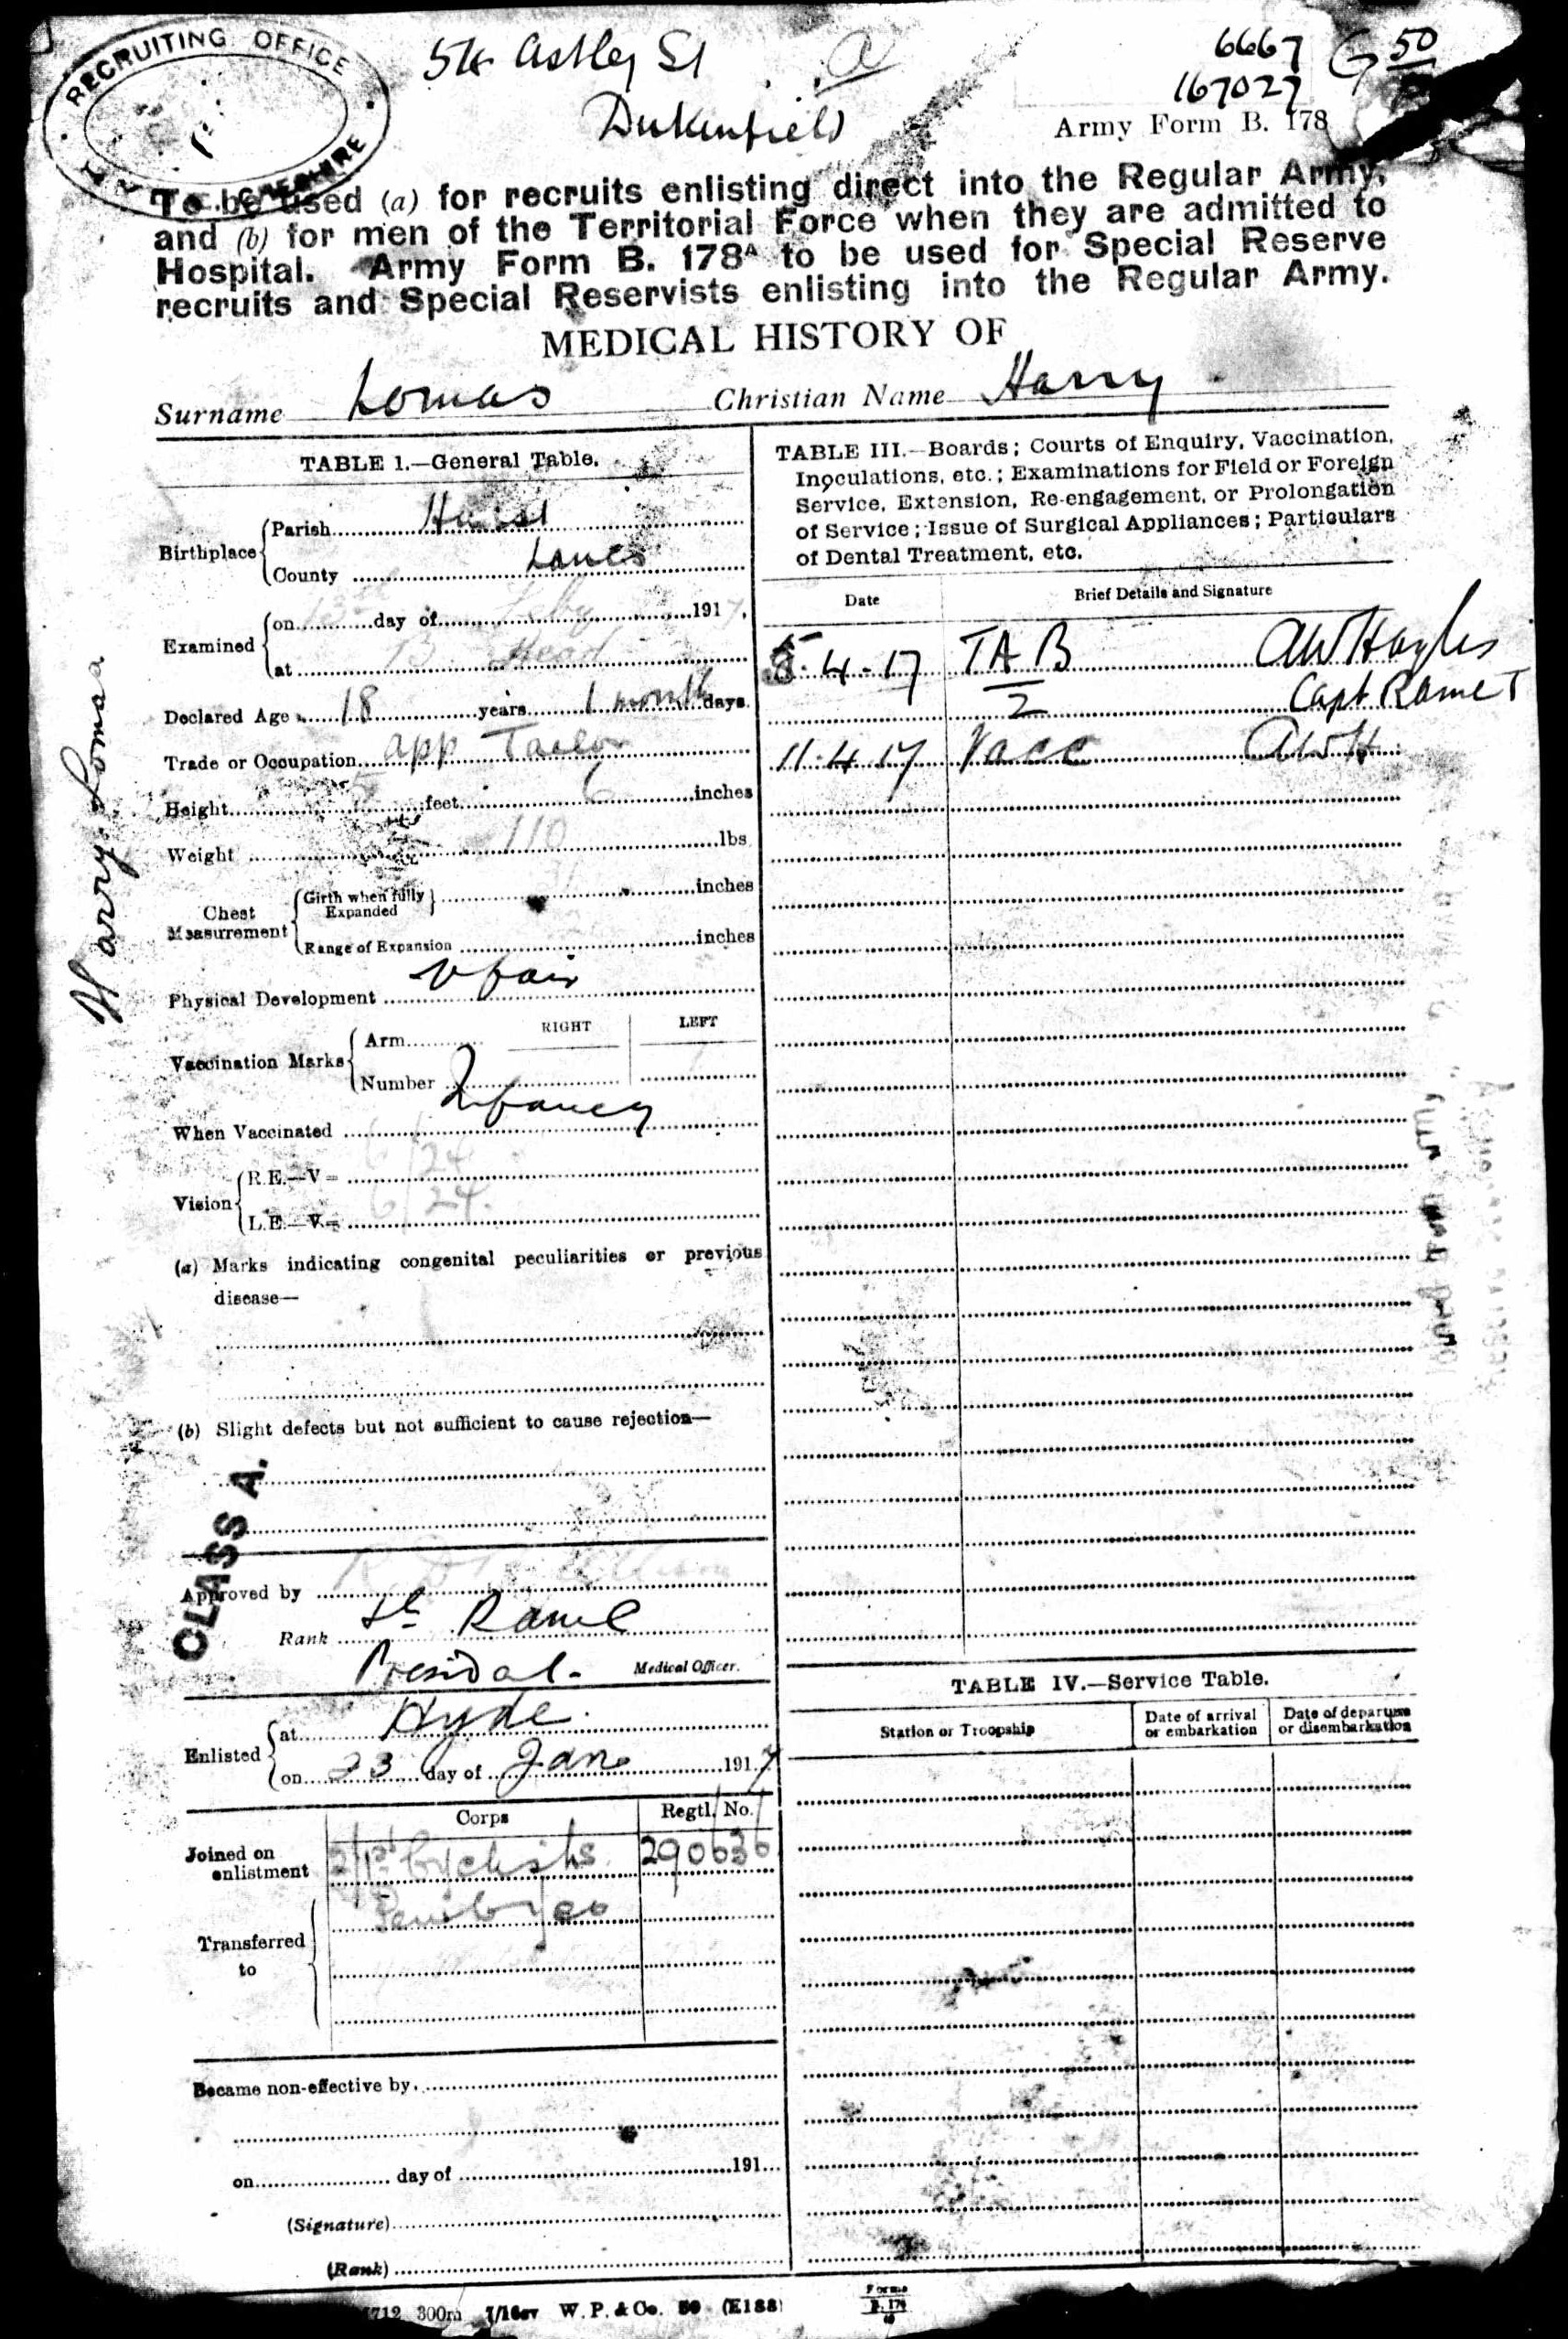 RECRUITING OFFICE
CHESHIRE
54 Astley St
Dukenfield
6667
167027
G 50
Army Form B. 178
To be used (a) for recruits enlisting direct into the Regular Army,
and (b) for men of the Territorial Force when they are admitted to
Hospital. Army Form B. 178A to be used for Special Reserve
recruits and Special Reservists enlisting into the Regular Army.
MEDICAL HISTORY OF
Surname Lomas Christian Name Harry
Harry Lomas
TABLE 1.—General Table.
Birthplace
Parish Hurst
County Lancs
Examined
on 13 day of Feby 1917.
at Head
Declared Age 18 years 1 month days.
Trade or Occupation app Tailor
Height 5 feet 6 inches
Weight 110 lbs
Chest Measurement
Girth when fully Expanded inches
Range of Expansion inches
Physical Development v fair
Vaccination Marks
RIGHT LEFT
Arm
Number
When Vaccinated Infancy
Vision
R.E.—V= 6/24
L.E.—V= 6/24.
(a) Marks indicating congenital peculiarities or previous
disease—
(b) Slight defects but not sufficient to cause rejection—
CLASS A.
Approved by
Rank Lt RAMC
Medical Officer.
Enlisted
at Hyde
on 23 day of Jan 1917
Corps Regtl. No.
Joined on enlistment
Cyclists 290636
Transferred to
Became non-effective by
on day of 191
(Signature)
(Rank)
TABLE III.—Boards; Courts of Enquiry, Vaccination,
Inoculations, etc.; Examinations for Field or Foreign
Service, Extension, Re-engagement, or Prolongation
of Service; Issue of Surgical Appliances; Particulars
of Dental Treatment, etc.
Date Brief Details and Signature
5-4-17 TAB AW Hayles
2 Capt RAMC T
11.4.17 Vacc AWH
TABLE IV.—Service Table.
Station or Troopship
Date of arrival or embarkation
Date of departure or disembarkation
712 300m 7/16 W. P. & Co. 50 (E188)
Forms
B. 178